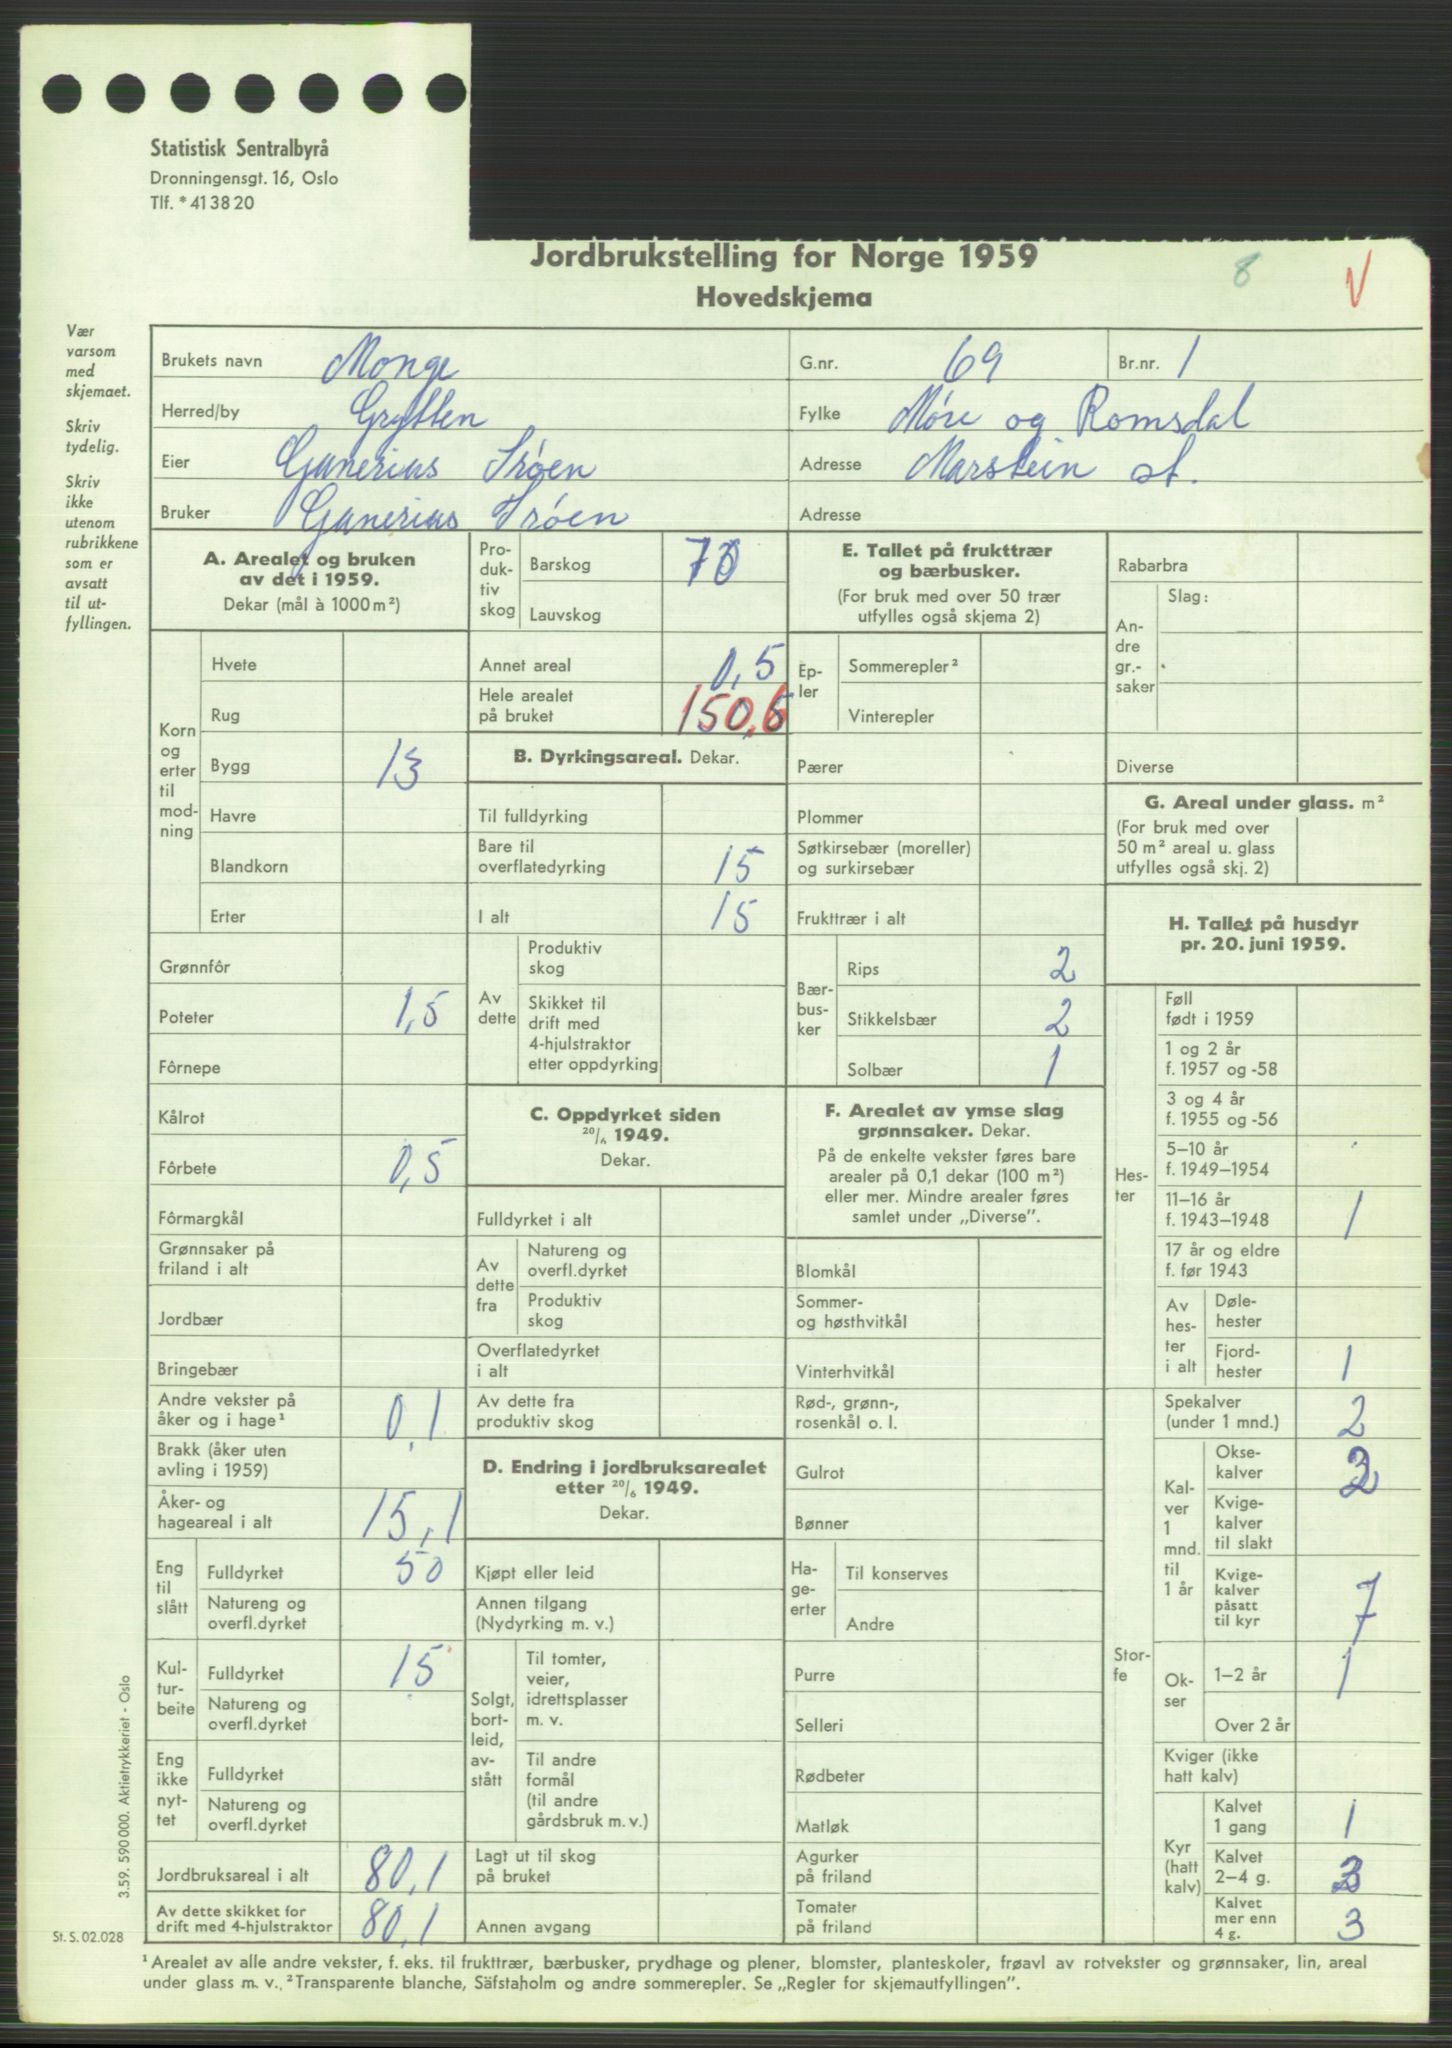 Statistisk Sentralbyrå
Dronningensgt. 16, Oslo
Tlf. * 41 38 20
Jordbrukstelling for Norge 1959
8 V
Hovedskjema
Vær
varsom
med
skjemaet.
Skriv
tydelig.
Skriv
ikke
utenom
rubrikkene
som er
avsatt
til ut-
fyllingen.
Brukets navn Monge G.nr. 69 Br.nr. 1
Herred/by Grytten Fylke Møre og Romsdal
Eier Gunerius Trøen Adresse Marstein st.
Bruker Gunerius Trøen Adresse
A. Arealet og bruken
av det i 1959.
Dekar (mål à 1000 m²)
Korn
og
erter
til
mod-
ning
Hvete
Rug
Bygg 13
Havre
Blandkorn
Erter
Grønnfôr
Poteter 1,5
Fôrnepe
Kålrot
Fôrbete 0,5
Fôrmargkål
Grønnsaker på
friland i alt
Jordbær
Bringebær
Andre vekster på
åker og i hage¹ 0,1
Brakk (åker uten
avling i 1959)
Åker- og
hageareal i alt 15,1
Eng
til
slått
Fulldyrket 50
Natureng og
overfl.dyrket
Kul-
tur-
beite
Fulldyrket 15
Natureng og
overfl.dyrket
Eng
ikke
nyt-
tet
Fulldyrket
Natureng og
overfl.dyrket
Jordbruksareal i alt 80,1
Av dette skikket for
drift med 4-hjulstraktor 80,1
Pro-
duk-
tiv
skog
Barskog 70
Lauvskog
Annet areal 0,5
Hele arealet
på bruket 150,6
B. Dyrkingsareal. Dekar.
Til fulldyrking
Bare til
overflatedyrking 15
I alt 15
Av
dette
Produktiv
skog
Skikket til
drift med
4-hjulstraktor
etter oppdyrking
C. Oppdyrket siden
20/6 1949.
Dekar.
Fulldyrket i alt
Av
dette
fra
Natureng og
overfl.dyrket
Produktiv
skog
Overflatedyrket
i alt
Av dette fra
produktiv skog
D. Endring i jordbruksarealet
etter 20/6 1949.
Dekar.
Kjøpt eller leid
Annen tilgang
(Nydyrking m. v.)
Solgt,
bort-
leid,
av-
stått
Til tomter,
veier,
idrettsplasser
m. v.
Til andre
formål
(til andre
gårdsbruk m. v.)
Lagt ut til skog
på bruket
Annen avgang
E. Tallet på frukttrær
og bærbusker.
(For bruk med over 50 trær
utfylles også skjema 2)
Ep-
ler
Sommerepler ²
Vinterepler
Pærer
Plommer
Søtkirsebær (moreller)
og surkirsebær
Frukttrær i alt
Bær-
bus-
ker
Rips 2
Stikkelsbær 2
Solbær 1
F. Arealet av ymse slag
grønnsaker. Dekar.
På de enkelte vekster føres bare
arealer på 0,1 dekar (100 m²)
eller mer. Mindre arealer føres
samlet under „Diverse”.
Blomkål
Sommer-
og høsthvitkål
Vinterhvitkål
Rød-, grønn-,
rosenkål o. l.
Gulrot
Bønner
Ha-
ge-
erter
Til konserves
Andre
Purre
Selleri
Rødbeter
Matløk
Agurker
på friland
Tomater
på friland
Rabarbra
An-
dre
gr.-
saker
Slag:
Diverse
G. Areal under glass. m²
(For bruk med over
50 m² areal u. glass
utfylles også skj. 2)
H. Tallet på husdyr
pr. 20. juni 1959.
Hes-
ter
Føll
født i 1959
1 og 2 år
f. 1957 og -58
3 og 4 år
f. 1955 og -56
5–10 år
f. 1949–1954
11–16 år
f. 1943–1948 1
17 år og eldre
f. før 1943
Av
hes-
ter
i alt
Døle-
hester
Fjord-
hester 1
Stor-
fe
Spekalver
(under 1 mnd.) 2
Kal-
ver
1
mnd.
til
1 år
Okse-
kalver 2
Kvige-
kalver
til slakt
Kvige-
kalver
påsatt
til kyr 7
Ok-
ser
1–2 år 1
Over 2 år
Kviger (ikke
hatt kalv)
Kyr
(hatt
kalv)
Kalvet
1 gang 1
Kalvet
2–4 g. 3
Kalvet
mer enn
4 g. 3
3.59. 590 000. Aktietrykkeriet - Oslo
St. S. 02.028
¹ Arealet av alle andre vekster, f. eks. til frukttrær, bærbusker, prydhage og plener, blomster, planteskoler, frøavl av rotvekster og grønnsaker, lin, areal
under glass m. v. ² Transparente blanche, Säfstaholm og andre sommerepler. Se „Regler for skjemautfyllingen”.